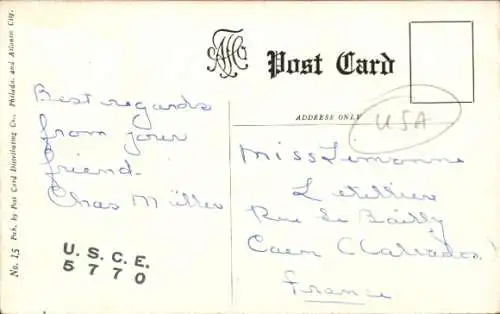 No. 15 Pub. by Post Card Distributing Co., Philada. and Atlantic City.
Post Card
ADDRESS ONLY
USA
Best regards
from your
friend-
Chas Müller
U.S.C.E.
5770
Miss Simonne
Letellier
Rue de Bailly
Caen (Calvados)
France